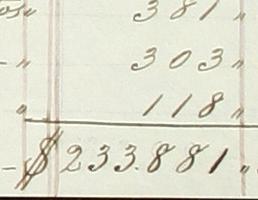 os " 381 "
- " 303 "
" 118 "
- $ 233.881 " -